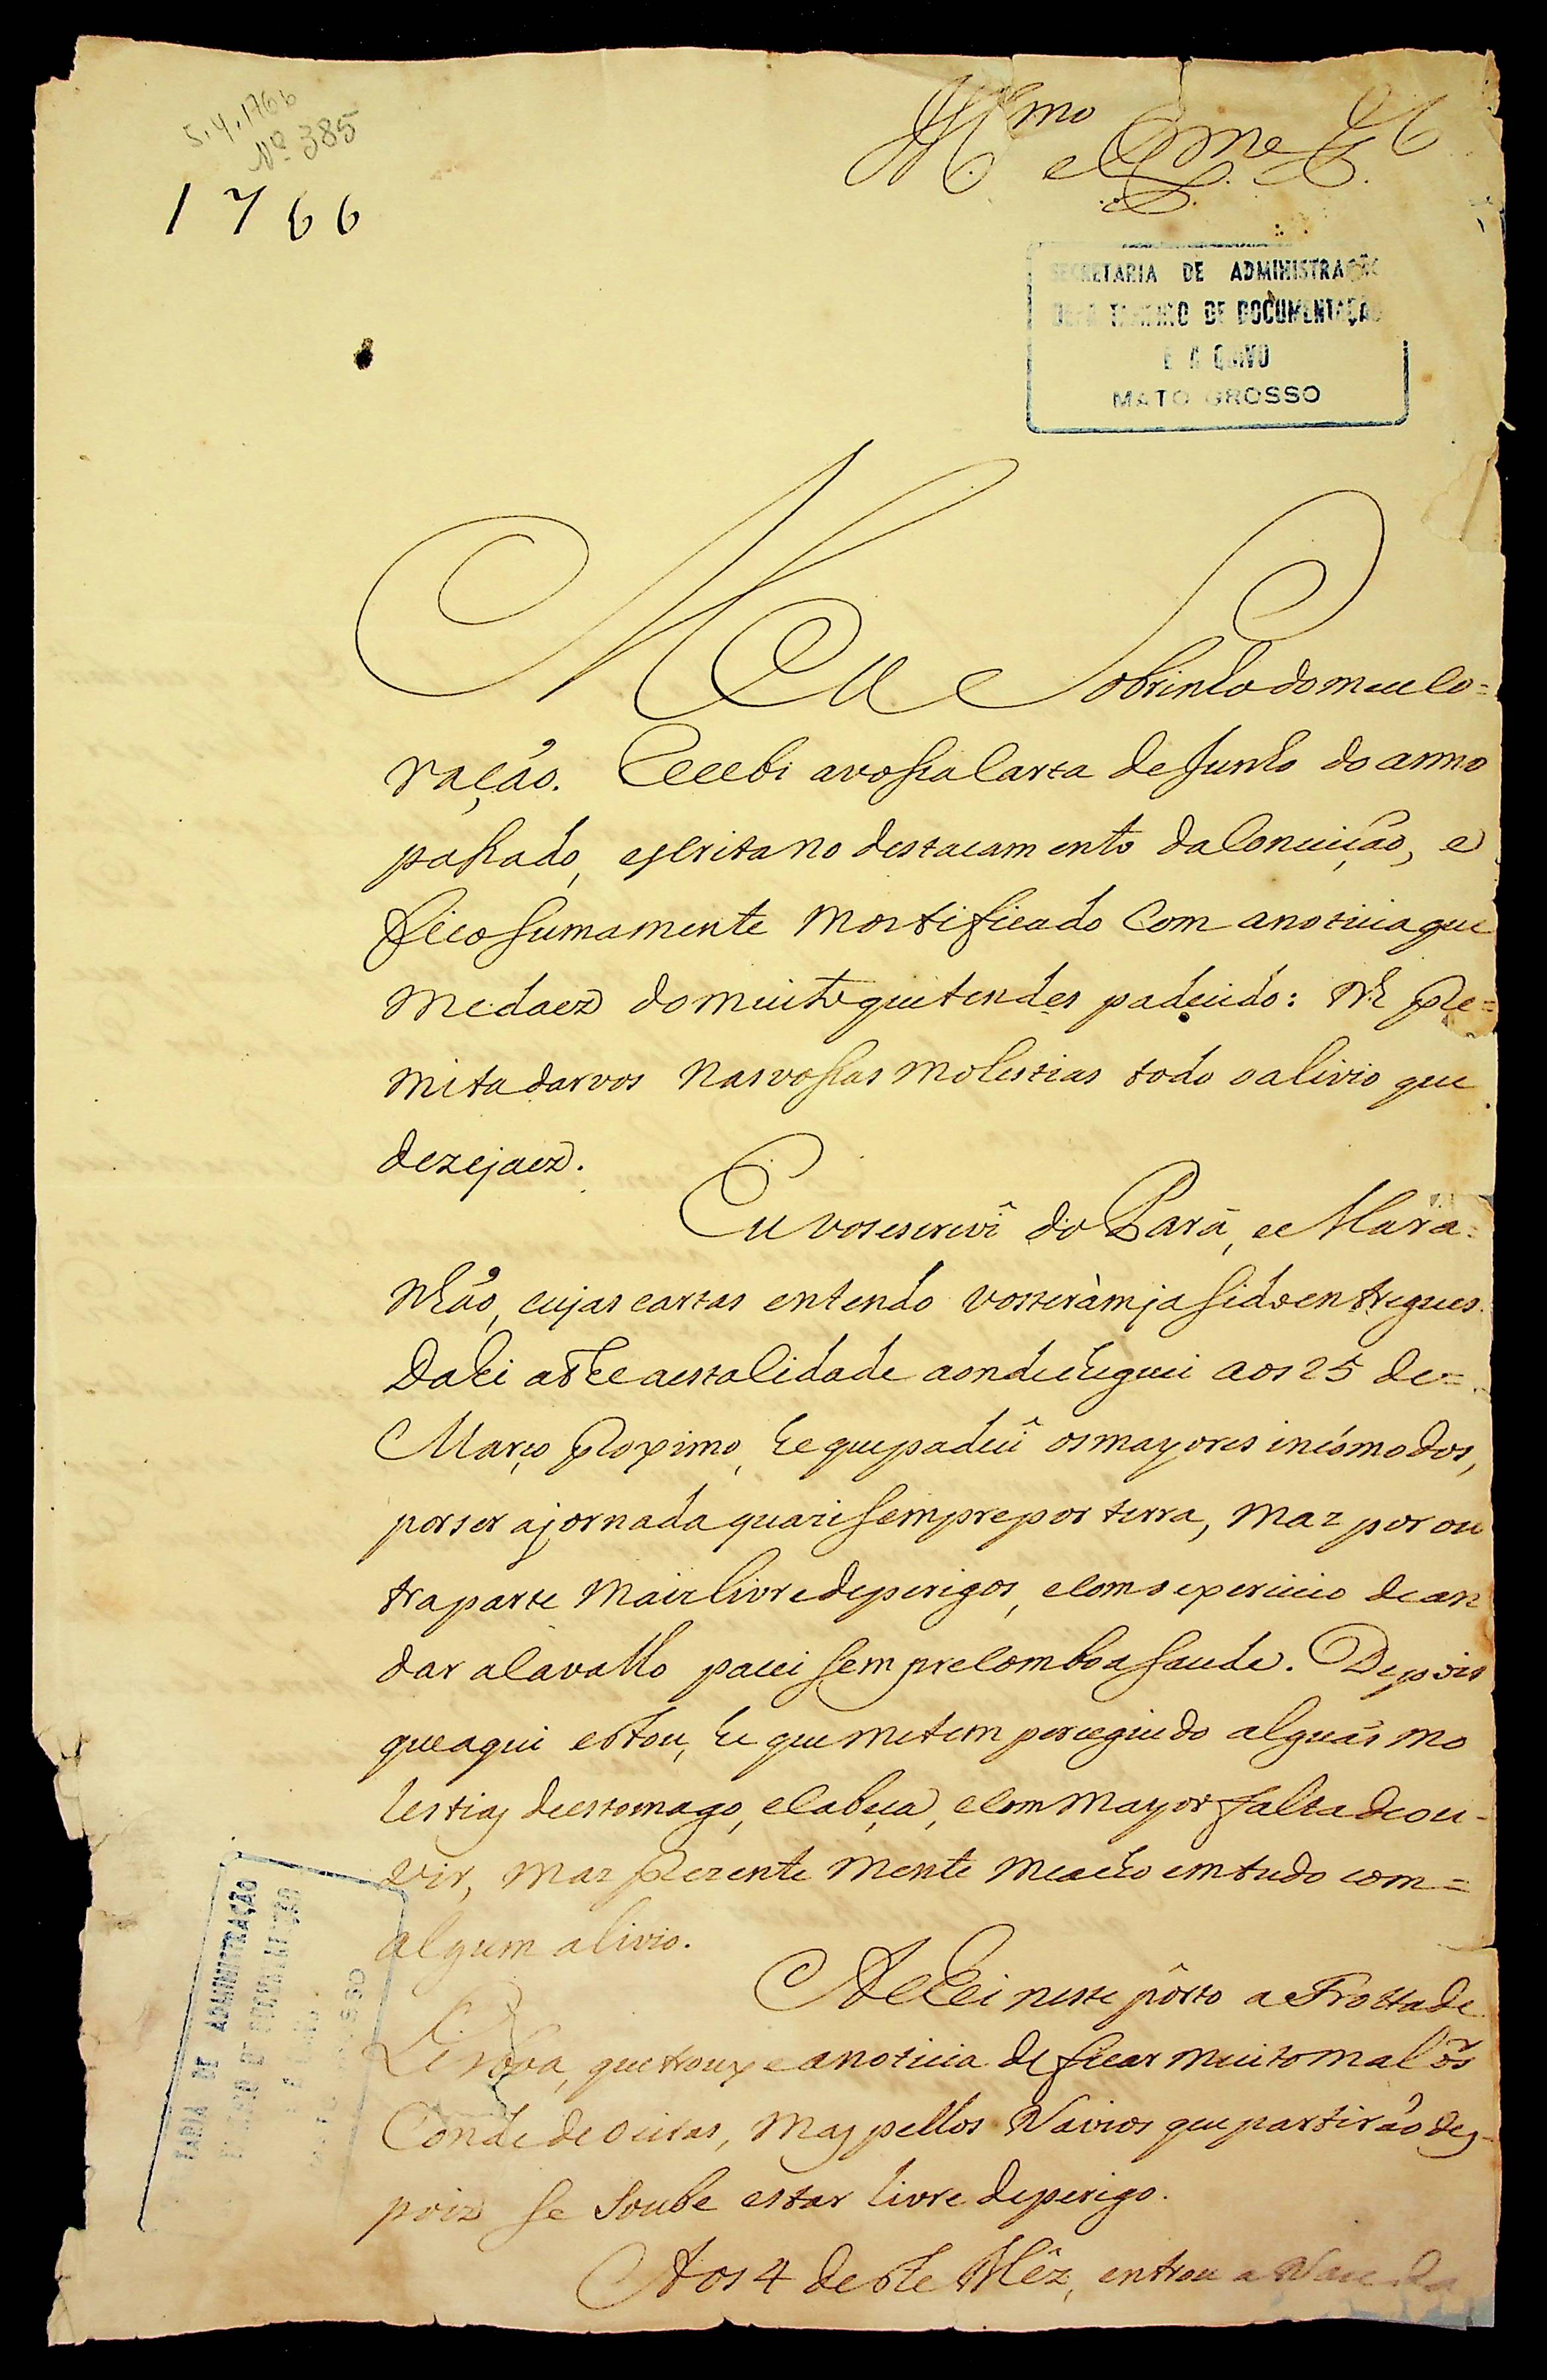 5.4.1766
Nº 385
1766
Ill.mo e Ex.mo S.
SECRETARIA DE ADMINISTRAÇÃO
DE DOCUMENTAÇÃO
MATO GROSSO
MEU Sobrinho do meu Co=
ração. Recebi a vossa Carta de Junho do anno
passado, escrita no destacamento da Conceição, e
fico sumamente mortificado Com a noticia que
me daez do muito que tendes padecido: N.S. Per=
mita darvos nas vossas molestias todo o alivio que
dezejaez.
Eu vos escrevî do Parâ, e Mara=
nhão, cujas cartas entendo vos teràm ja sido entregues.
Dahi athe a esta Cidade aonde cheguei aos 25 de=
Março proximo, he que padecî os mayores incómodos,
por ser a jornada quazi sempre por terra, maz por ou
tra parte maiz livre de perigos, e Com o exercicio de an
dar a Cavallo pacei sempre Com boa saude. Depois
que aqui estou, he que me tem perceguido alguãs mo
lestias de estomago, e Cabeça, e Com mayor falta de ou-
vir, maz prezente mente me acho em tudo com=
algum alivio.
Achei neste pôrto a Frotta de
Lisboa, que trouxe a noticia de ficar muito mal o S.r
Conde de Oeiras, mas pellos Navios que partirão des-
poiz se soube estar livre de perigo.
Aos 4 deste Mêz, entrou a Nau da
ARIA DE ADMINISTRAÇÃO